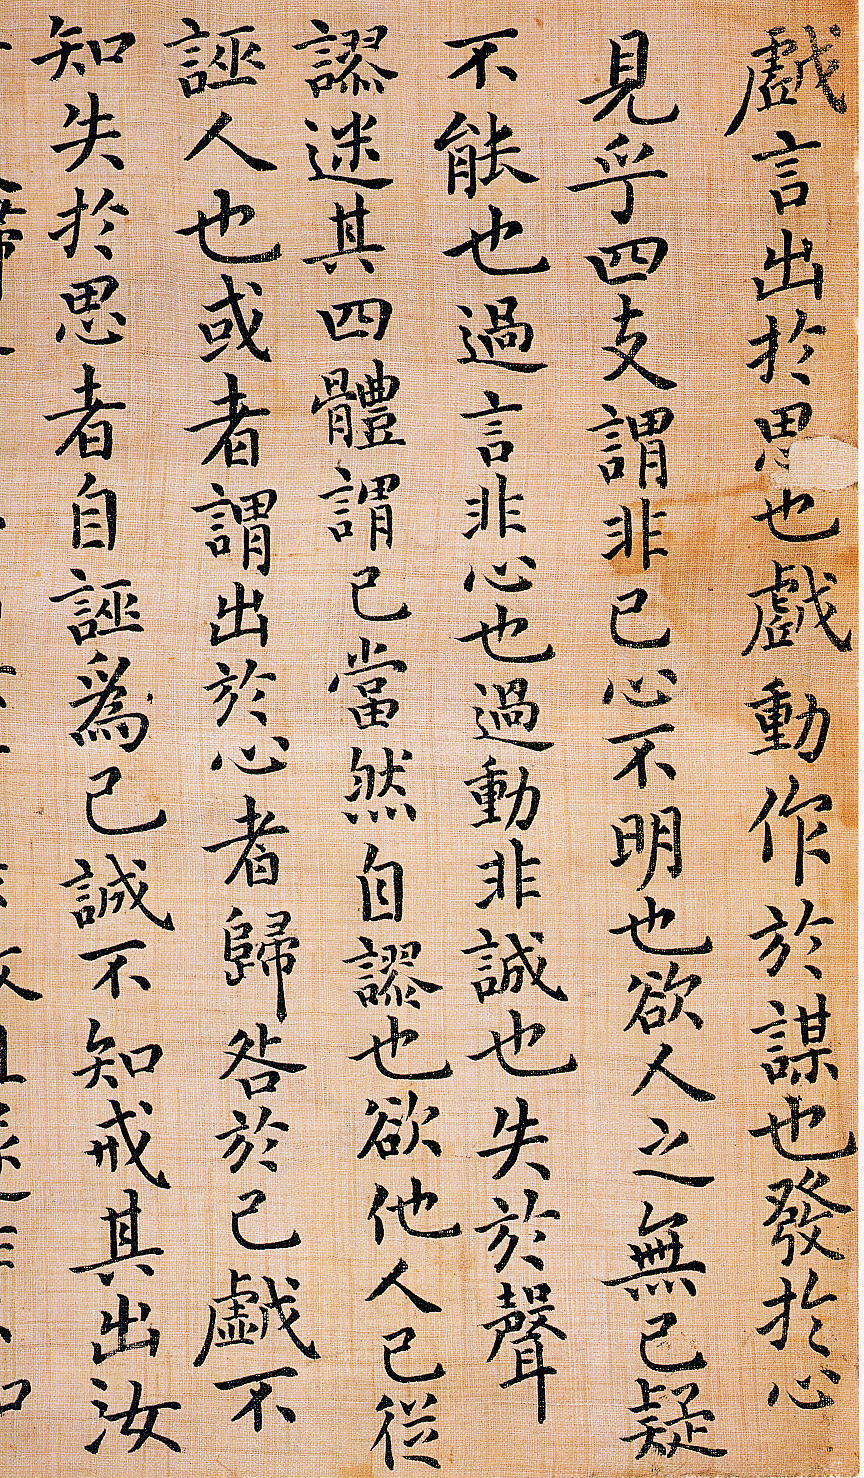 戲言出於思也戲動作於謀也發於心
見乎四支謂非己心不明也欲人之無己疑
不能也過言非心也過動非誠也失於聲
謬迷其四體謂己當然自謬也欲他人己從
誣人也或者謂出於心者歸咎於己戲不
知失於思者自誣爲己誠不知戒其出汝